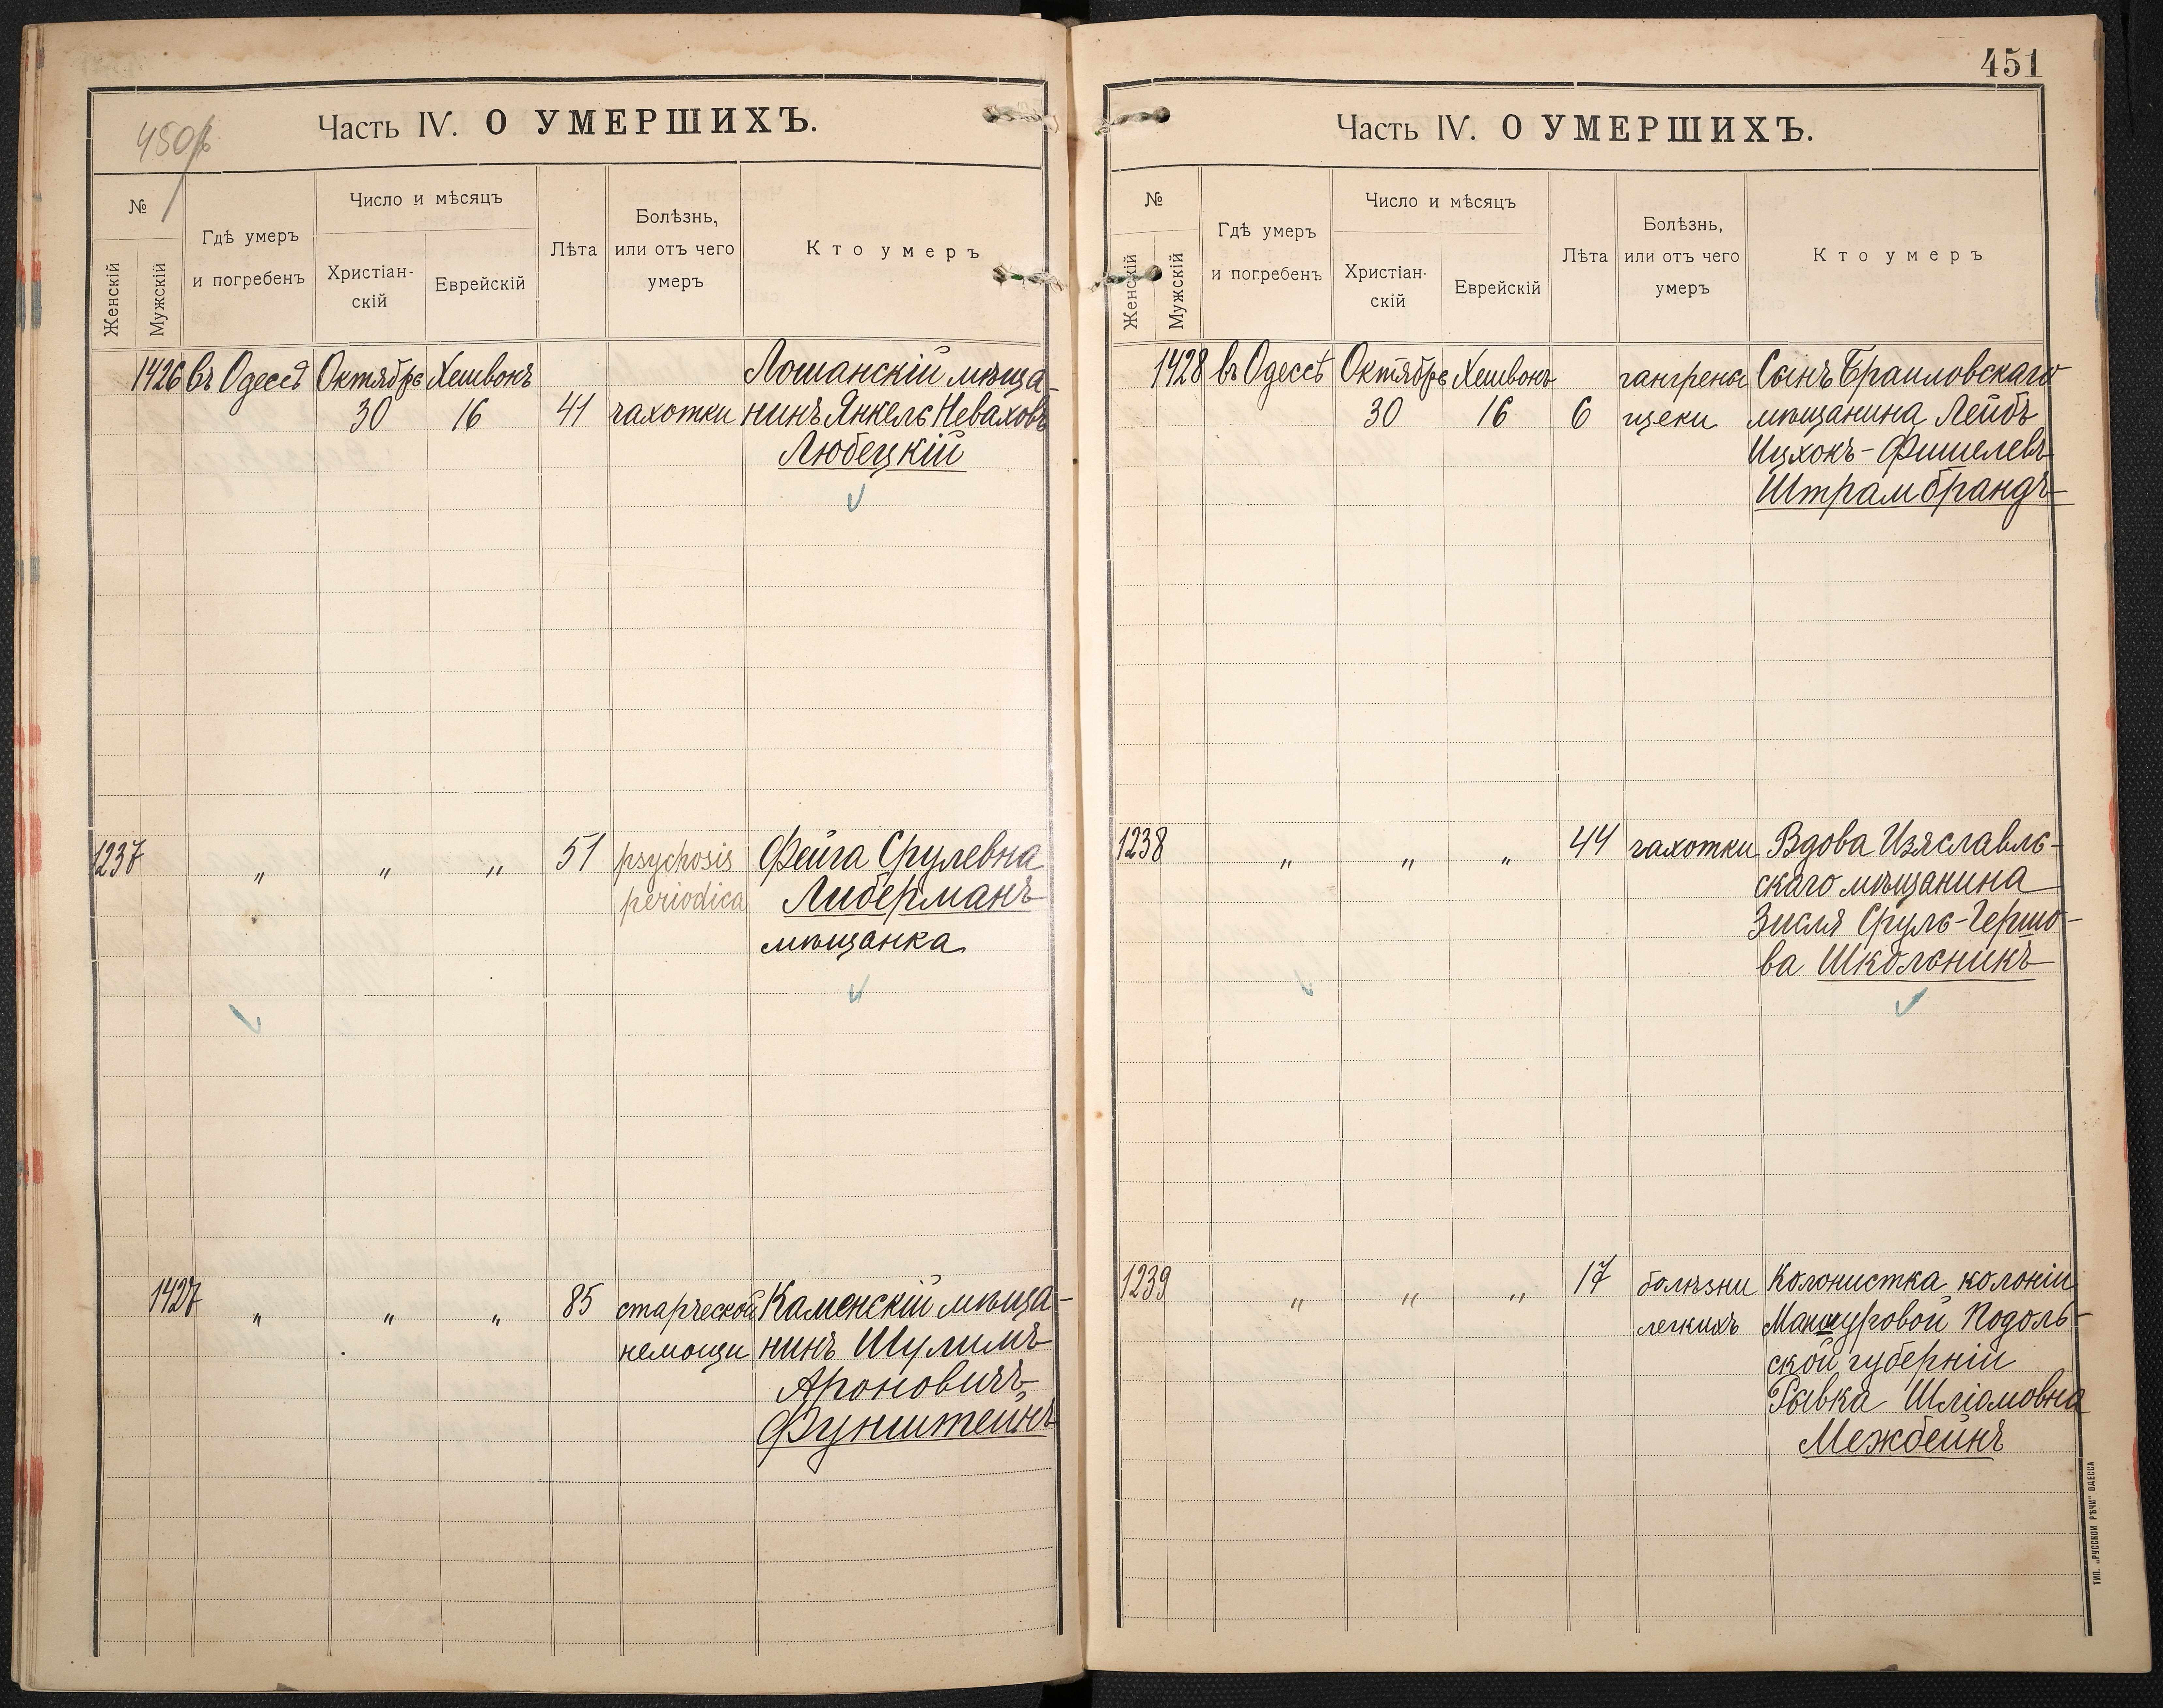 450 об
Часть IV. О УМЕРШИХЪ.
№
Женскій
Мужскій
Гдѣ умеръ
и погребенъ
Число и мѣсяцъ
Христіан-
скій
Еврейскій
Лѣта
Болѣзнь,
или отъ чего
умеръ
Кто умеръ
1426 въ Одессѣ Октябрь Хешвонъ Лошанскій мѣща-
30 16 41 чахотки нинъ Янкель Неваховъ
Любецкій
1237 „ „ „ 51 psychosis Фейга Срулевна
periodica Либерманъ
мѣщанка
1427 „ „ „ 85 старческой Каменскій мѣща-
немощи нинъ Шулимъ
Ароновичъ
Фунштейнъ
451
Часть IV. О УМЕРШИХЪ.
№
Женскій
Мужскій
Гдѣ умеръ
и погребенъ
Число и мѣсяцъ
Христіан-
скій
Еврейскій
Лѣта
Болѣзнь,
или отъ чего
умеръ
Кто умеръ
1428 въ Одессѣ Октябрь Хешвонъ гангрены Сынъ Браиловскаго
30 16 6 щеки мѣщанина Лейбъ
Ицхокъ-Фишелевъ
Штрамбрандъ
1238 „ „ „ 44 чахотки Вдова Изяславль-
скаго мѣщанина
Зисля Сруль-Гершо-
ва Школьникъ
1239 „ „ „ 17 болѣзни Колонистка колоніи
легкихъ Маншуровой Подоль-
ской губерніи
Рывка Шліомовна
Межбейнъ
ТИП. „РУССКОЙ РѢЧИ" ОДЕССА